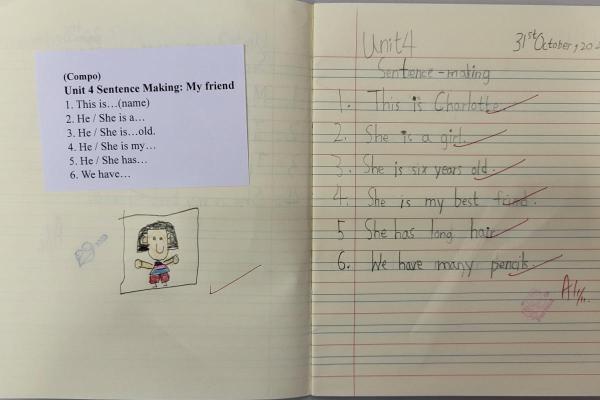 (Compo)
Unit 4 Sentence Making: My friend
1. This is…(name)
2. He / She is a…
3. He / She is…old.
4. He / She is my…
5. He / She has…
6. We have…
Unit4
31st October, 202
Sentence-making
1. This is Charlotte.
2. She is a girl.
3. She is six years old.
4. She is my best
5 She has long hair
6. We have many pencils.
A1